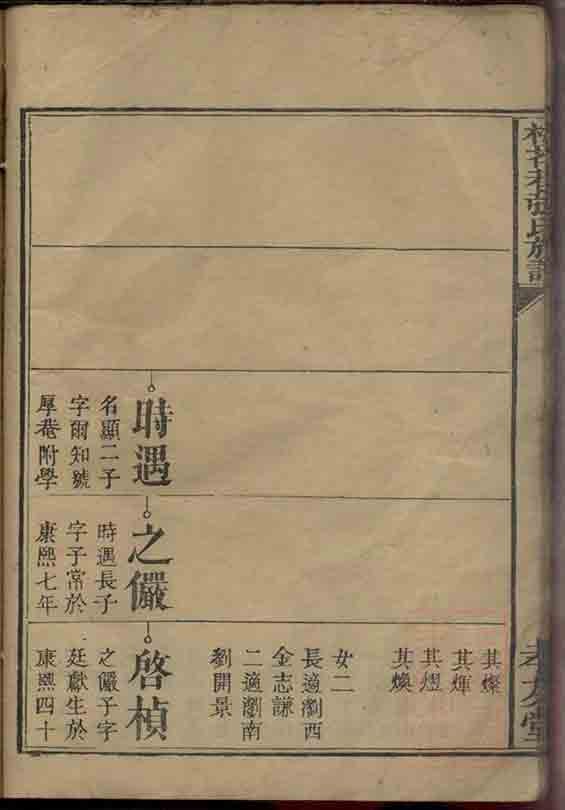 張氏族譜
孝友堂
時遇
名顯二子
字爾知號
厚菴附學
之儼
時遇長子
字子常於
康熙七年
其燦
其煇
其
其煥
女二
長適瀏西
金志謙
二適瀏南
劉開景
啓楨
之儼子字
廷獻生於
康熙四十